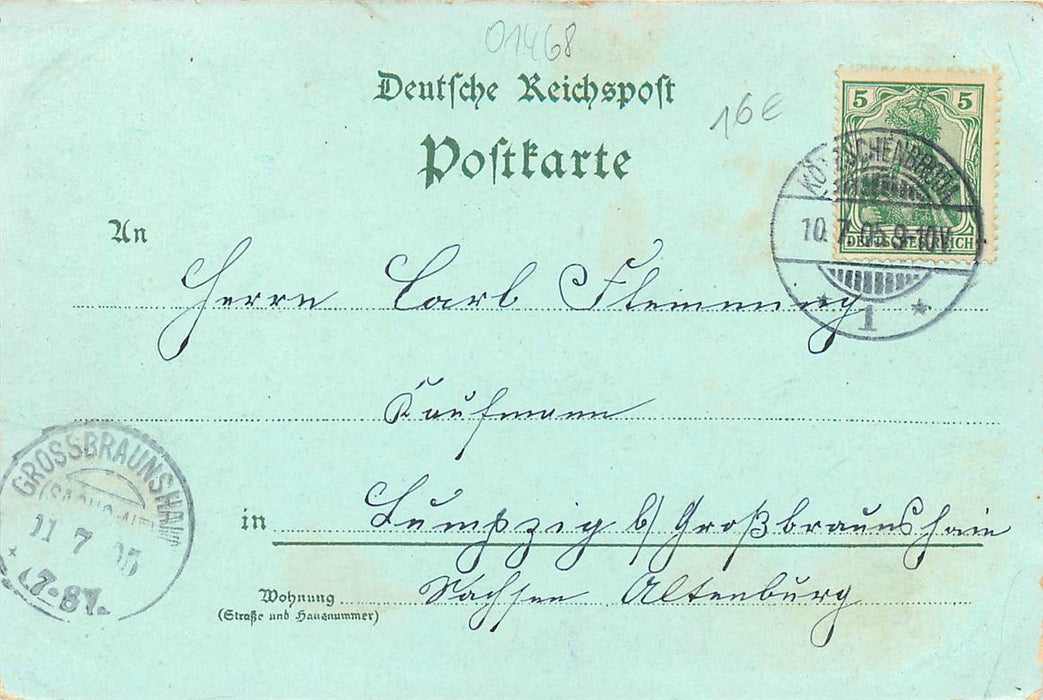 01468
Deutsche Reichspost
16€
Postkarte
5 5
DEUTSCHES REICH
KÖTZSCHENBRODA
10. 7. 05. 9-10V.
1
An
Herrn Carl Flemming
Kaufmann
in Lumpzig b/ Großbraunshain
Sachsen Altenburg
Wohnung
(Straße und Hausnummer)
GROSSBRAUNSHAIN
11 7 05
7-8V.